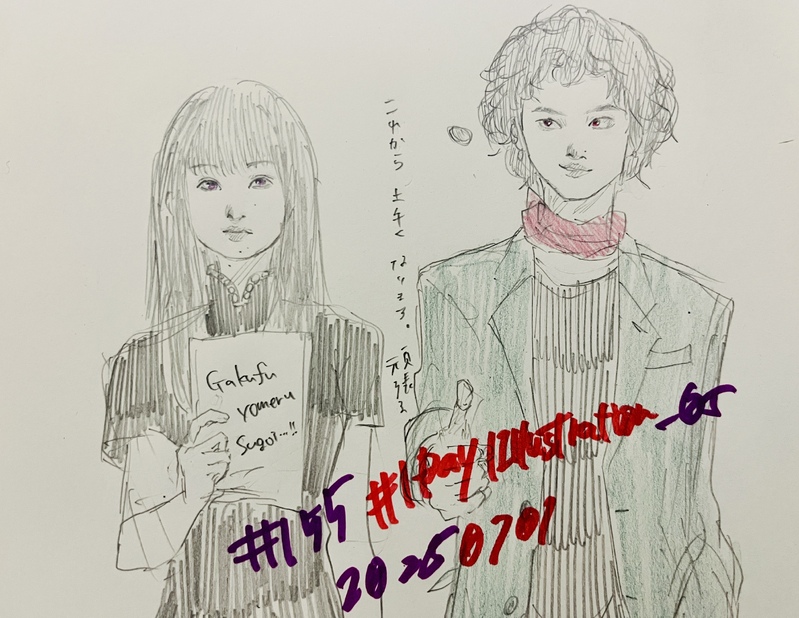 これから上手くなります。頑張る
Gakufu
yomeru
Sugoi...!!
#155 #1Day1Illustration_65
20250701